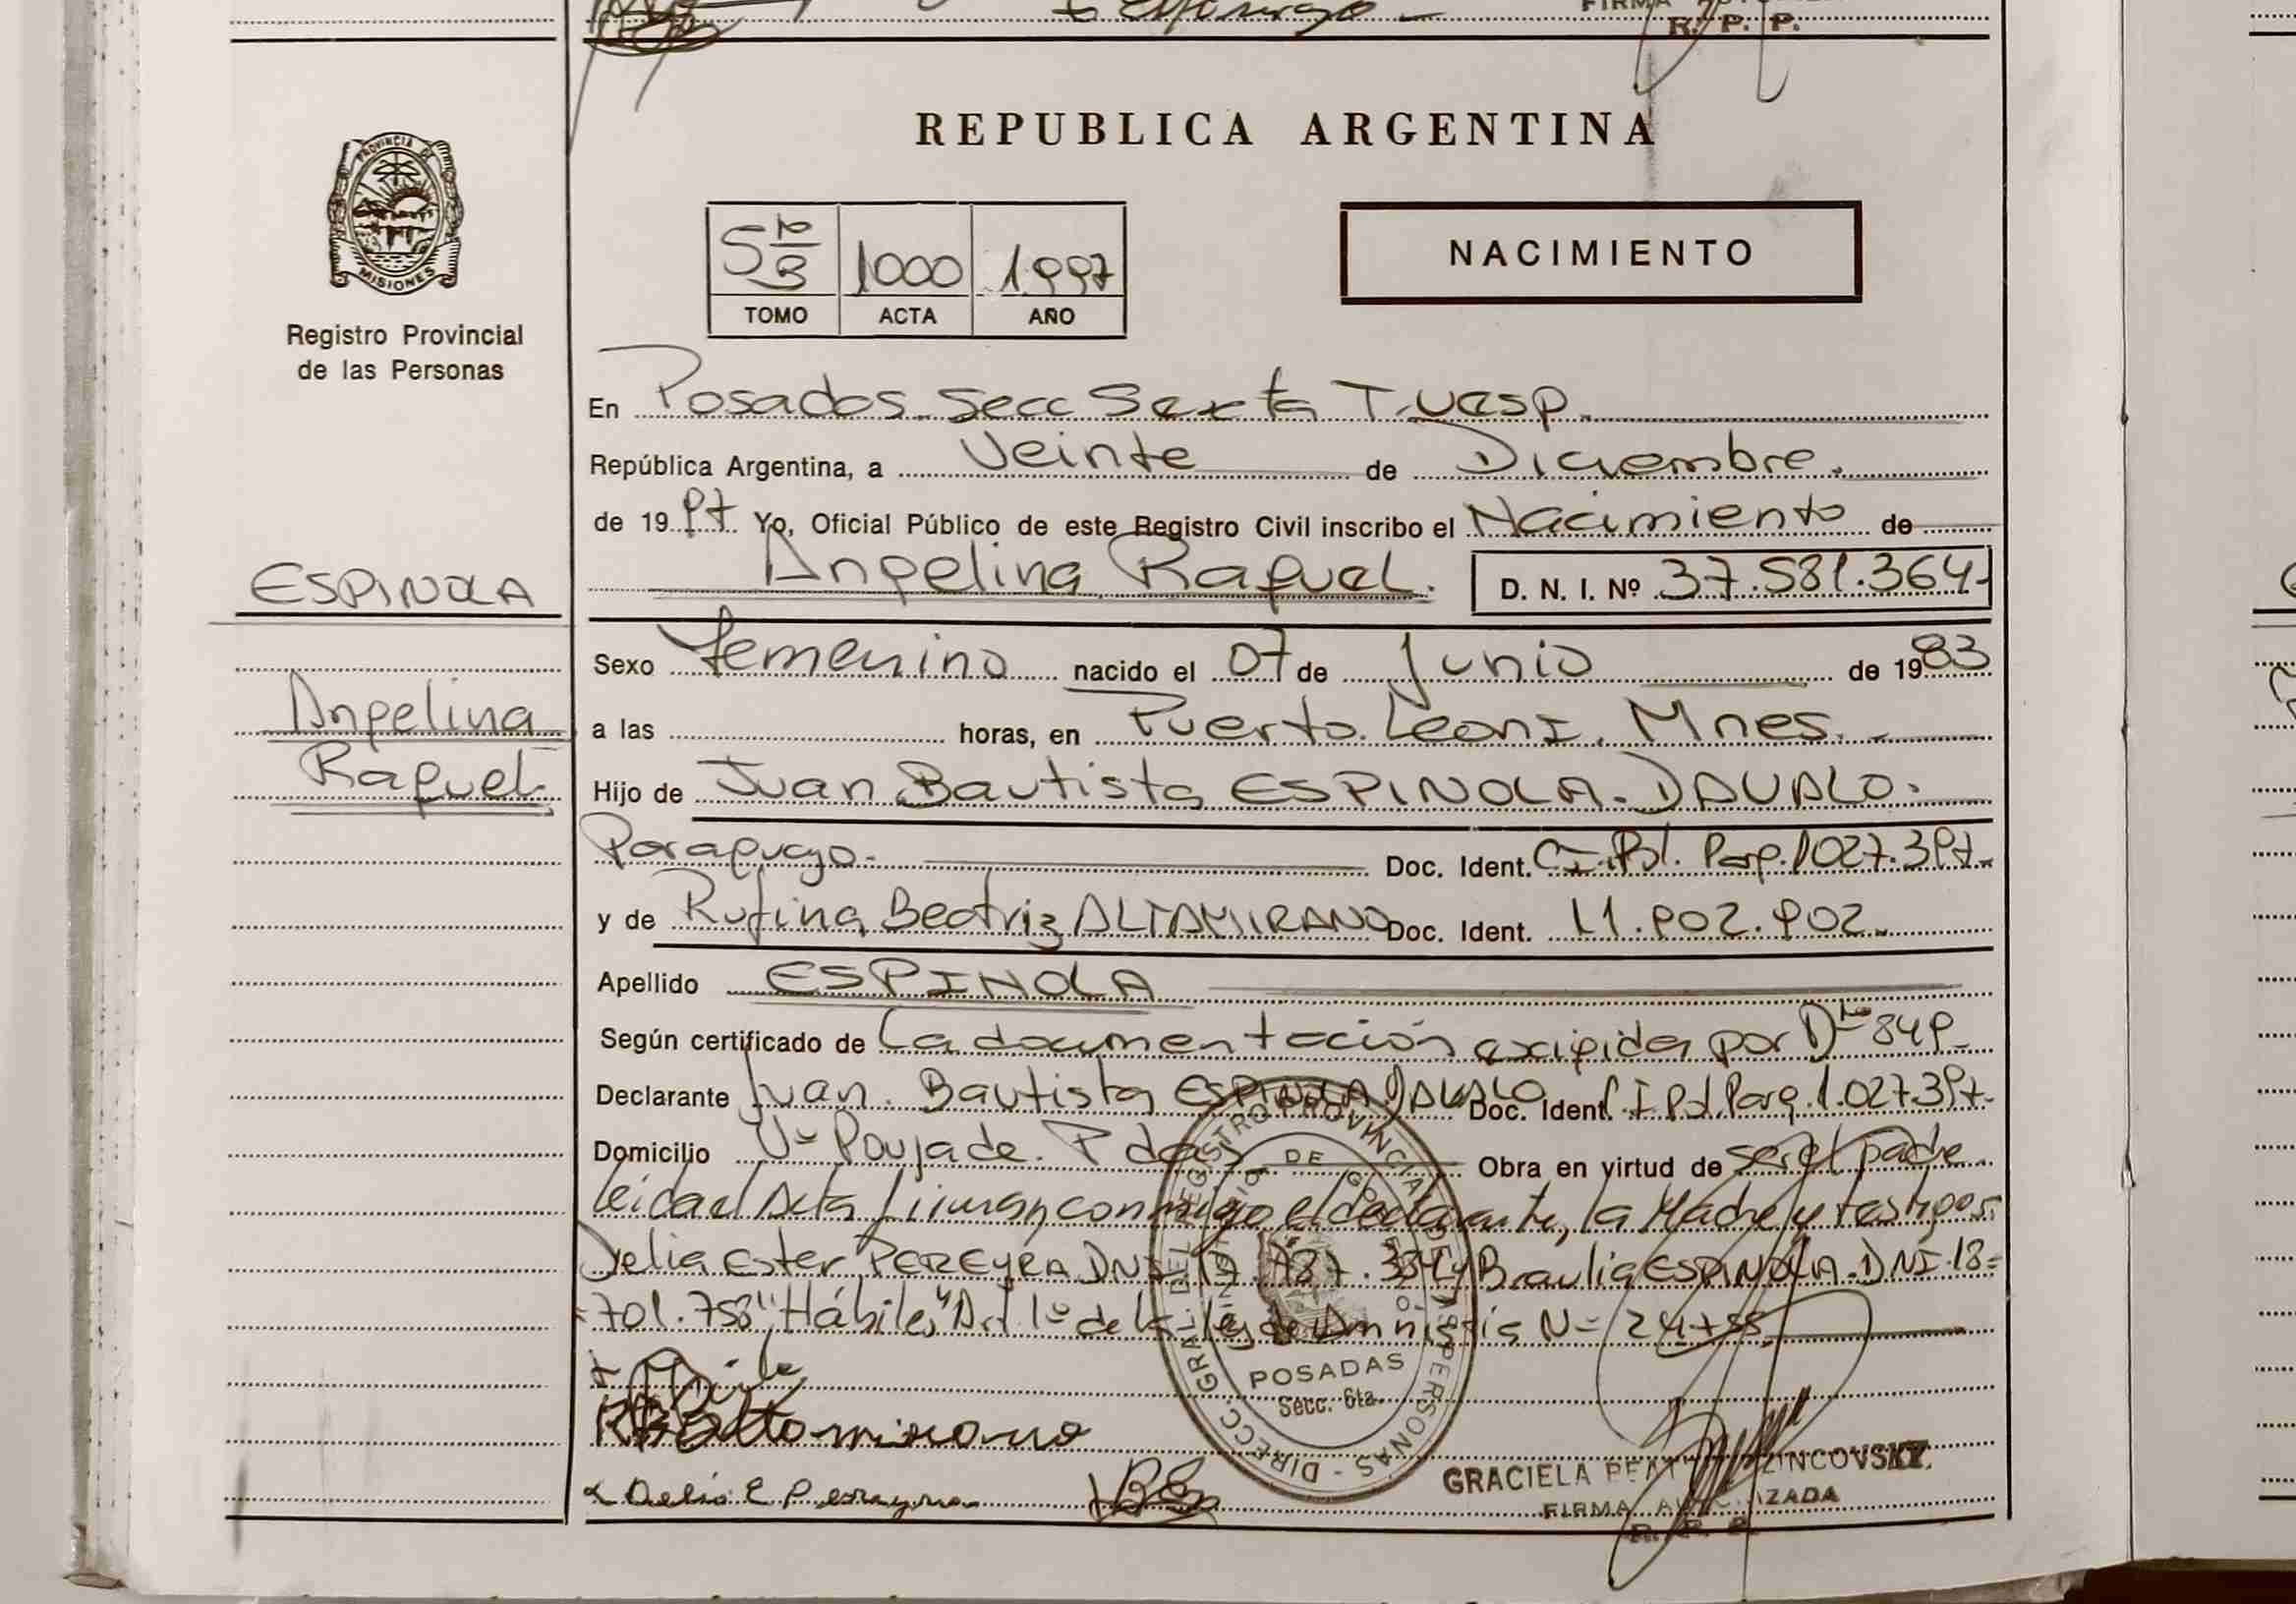 R. P. P.
PROVINCIA DE MISIONES
Registro Provincial
de las Personas
REPUBLICA ARGENTINA
1000 1.997
TOMO ACTA AÑO
NACIMIENTO
En Posadas. Secc Sexta T. Vesp.
República Argentina, a Veinte de Diciembre.
de 19 97 Yo, Oficial Público de este Registro Civil inscribo el Nacimiento de
ESPINOLA
Angelina Raquel. D. N. I. Nº 37.581.364-
Sexo femenino nacido el 07 de Junio de 19 83
Angelina
Raquel
a las horas, en Puerto Leoni. Mnes.
Hijo de Juan Bautista ESPINOLA. DAVALO.
Paraguayo. Doc. Ident. C.I. Pol. Parg. 1027.397.
y de Rufina Beatriz ALTAMIRANO Doc. Ident. 11.902.902.
Apellido ESPINOLA
Según certificado de La documentación exigida por Dto 849
Declarante Juan. Bautista ESPINOLA DAVALO Doc. Ident. C I Pol Parg. 1.027.397.
Domicilio Vº Poujade. Pdas Obra en virtud de ser el padre
leida el Acta firman conmigo el declarante, la Madre y testigos:
Delia Ester PEREYRA DNI 17. 787. y Braulia ESPINOLA. DNI. 18=
=701.758 "Hábiles" Art 1º de la Ley de Amnistía Nº 24755
R B Altamirano
Delia E Pereyra
DIRECC. GRAL. DEL REGISTRO PROVINCIAL DE LAS PERSONAS -
POSADAS
Secc. 6ta.
GRACIELA
FIRMA AUTORIZADA
R. P. P.